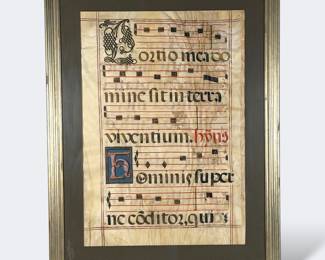 Portio mea do
mine sit in terra
viventium. hȳnꝯ
Hominis super
ne cōditor, qui